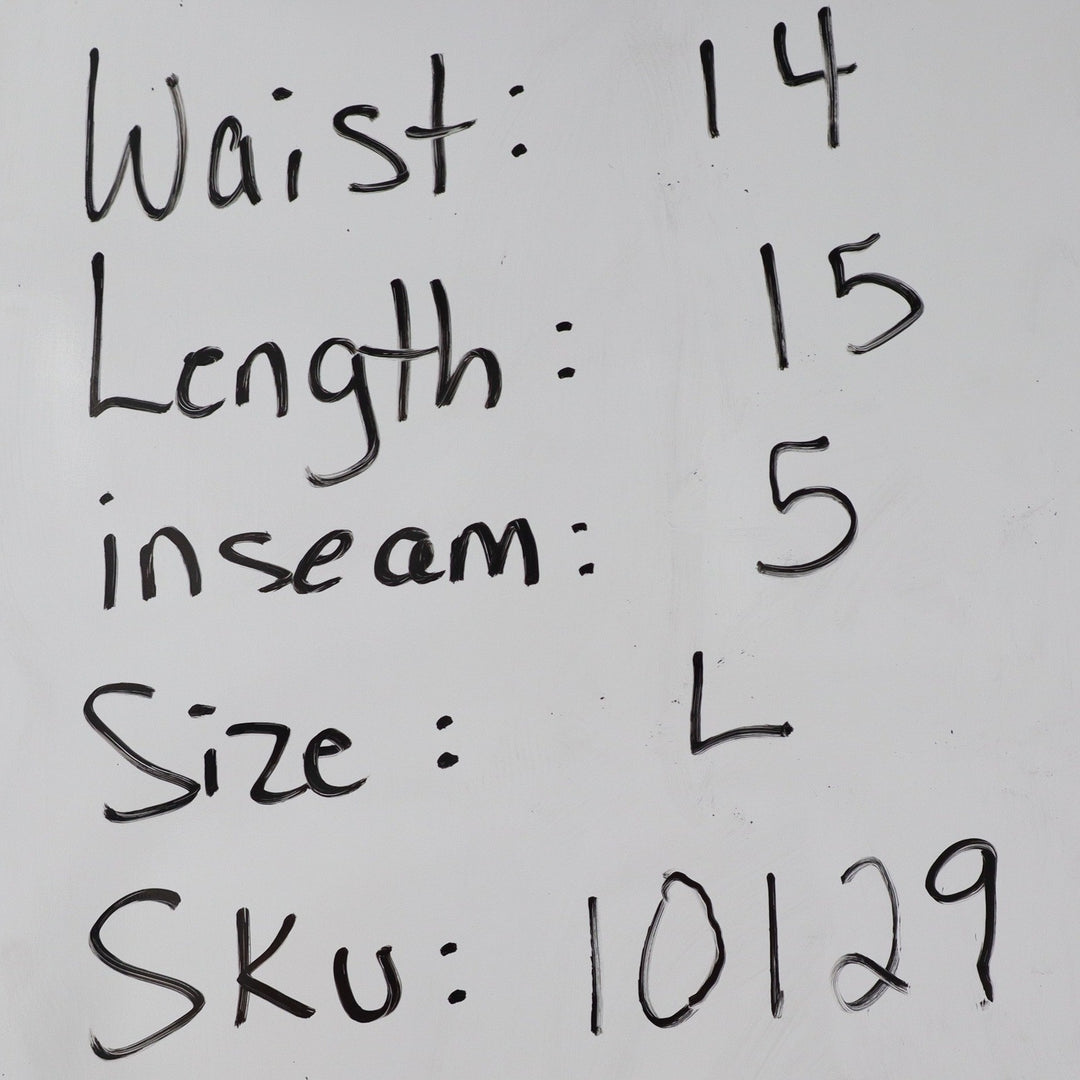 Waist: 14
Length: 15
inseam: 5
Size: L
SKU: 10129